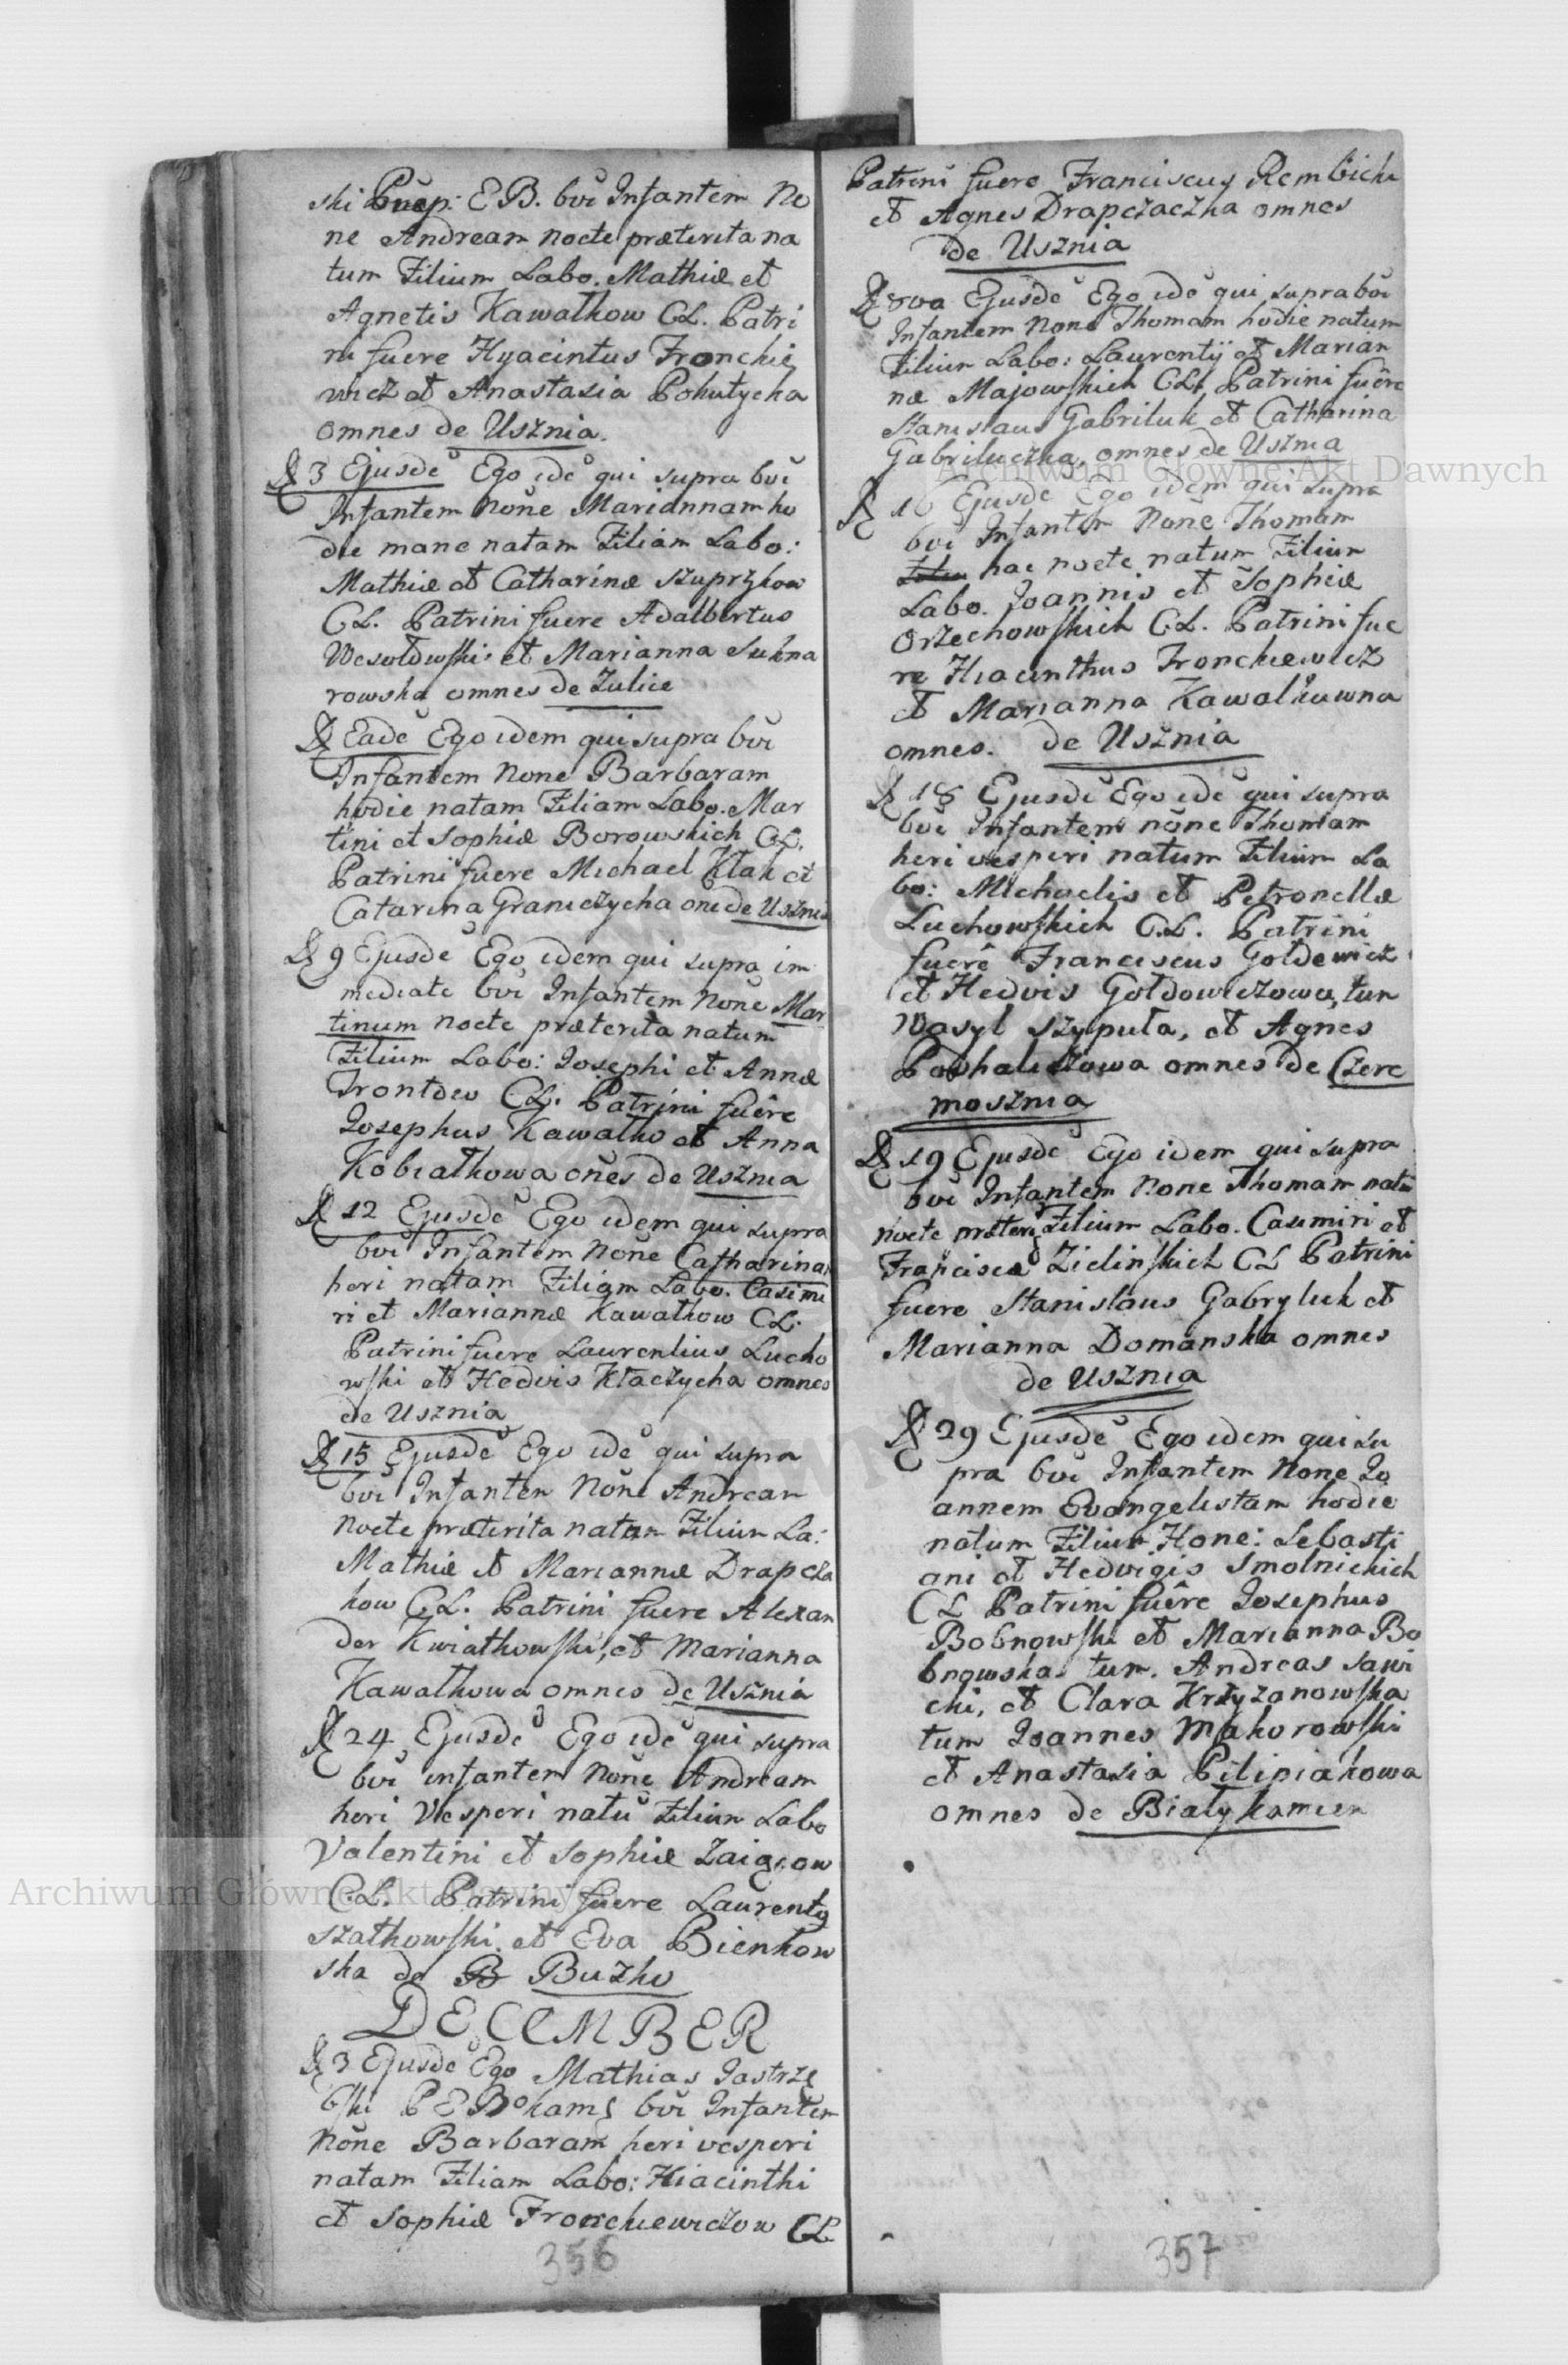 ski Præp: E.B. bvi Infantem No
ne Andream nocte præterita na
tum Filium Labo. Mathiæ et
Agnetis Kawałkow CL. Patri
ni fuere Hyacintus Fronckie
wicz et Anastasia Pohutycha
omnes de Usznia.
3 Ejusdē Ego idē qui supra bvi
Infantem Nōne Mariannam ho
die mane natam Filiam Labo:
Mathiæ et Catharinæ Szuprzkow
CL. Patrini fuere Adalbertus
Wesołowski et Marianna Suhna
rowska omnes de Zulice
Eadē Ego idem qui supra bvi
Infantem None Barbaram
hodie natam Filiam Labo. Mar
tini et Sophiæ Borowskich CL.
Patrini fuere Michael Kłak et
Catarina Graniczycha oñe de Usznia
9 Ejusdē Ego idem qui supra im
mediate bvi Infantem Nōne Mar
tinum nocte præterita natum
Filium Labo: Josephi et Annæ
Frontów CL. Patrini fuêre
Josephus Kawałko et Anna
Kobiałkowa oñes de Usznia
12 Ejusdē Ego idem qui supra
bvi Infantem Nōne Catharinam
heri natam Filiam Labo. Casimi
ri et Mariannæ Kawałkow CL.
Patrini fuere Laurentius Lucho
wski et Hedvis Kłaczycha omnes
de Usznia
15 Ejusdē Ego idē qui supra
bvi Infantem Nōne Andream
Nocte præterita natam Filium La:
Mathiæ et Mariannæ Drapcza
kow CL. Patrini fuere Alexan
der Kwiatkowski, et Marianna
Kawałkowa omnes de Usznia
24 Ejusdē Ego idē qui supra
bvi infantem Nōne Andream
heri Vesperi natū Filium Labo
Valentini et Sophiæ Zaigcow
CL. Patrini fuere Laurenty
Szatkowski et Eva Bienkow
ska de B Buzko
DECEMBER
3 Ejusdē Ego Mathias Jastrzę
bski P E Bokamś bvi Infantem
Nōne Barbaram heri vesperi
natam Filiam Labo: Hiacinthi
et Sophiæ Fronckiewiczow CL
356
Patrini fuere Franciscus Rembicki
et Agnes Drapczaczka omnes
de Usznia
8va Ejusdē Ego idē qui supra bvi
Infantem None Thomam hodie natum
Filium Labo: Laurentij et Marian
næ Majowskich CL. Patrini fuêre
Stanislaus Gabriluk et Catharina
Gabriluczka, omnes de Usznia
16 Ejusdē Ego idem qui supra
bvi Infantem Nōne Thomam
hac nocte natum Filium
Labo. Joannis et Sophiæ
Orzechowskich CL. Patrini fue
re Hiacinthus Fronckiewicz
et Marianna Kawałkuwna
omnes. de Usznia
18 Ejusdē Ego idē qui supra
bvi Infantem nōne Thomam
heri vesperi natum Filium La
bo: Michaelis et Petronellæ
Luchowskich C.L. Patrini
fuêre Franciscus Gołdewicz
et Hedvis Gołdowiczowa, tum
Wasyl Szypuła, et Agnes
Paskaliszowa omnes de Czere
mosznia
19 Ejusdē Ego idem qui supra
bvi Infantem None Thomam natū
nocte præteri Filium Labo. Casimiri et
Franciscæ Zielinskich CL Patrini
fuere Stanislaus Gabryluk et
Marianna Domanska omnes
de Usznia
29 Ejusdē Ego idem qui su
pra bvi Infantem None Jo
annem Evangelistam hodie
natum Filium Hone: Sebasti
ani et Hedvigis Smolnickich
CL Patrini fuêre Josephus
Bobnowski et Marianna Bo
bnowska tum. Andreas Sawi
cki, et Clara Krzyzanowska
tum Joannes Makorowski
et Anastasia Pilipiakowa
omnes de Białykamien
357
Archiwum Główne Akt Dawnych
Archiwum Główne Akt Dawnych